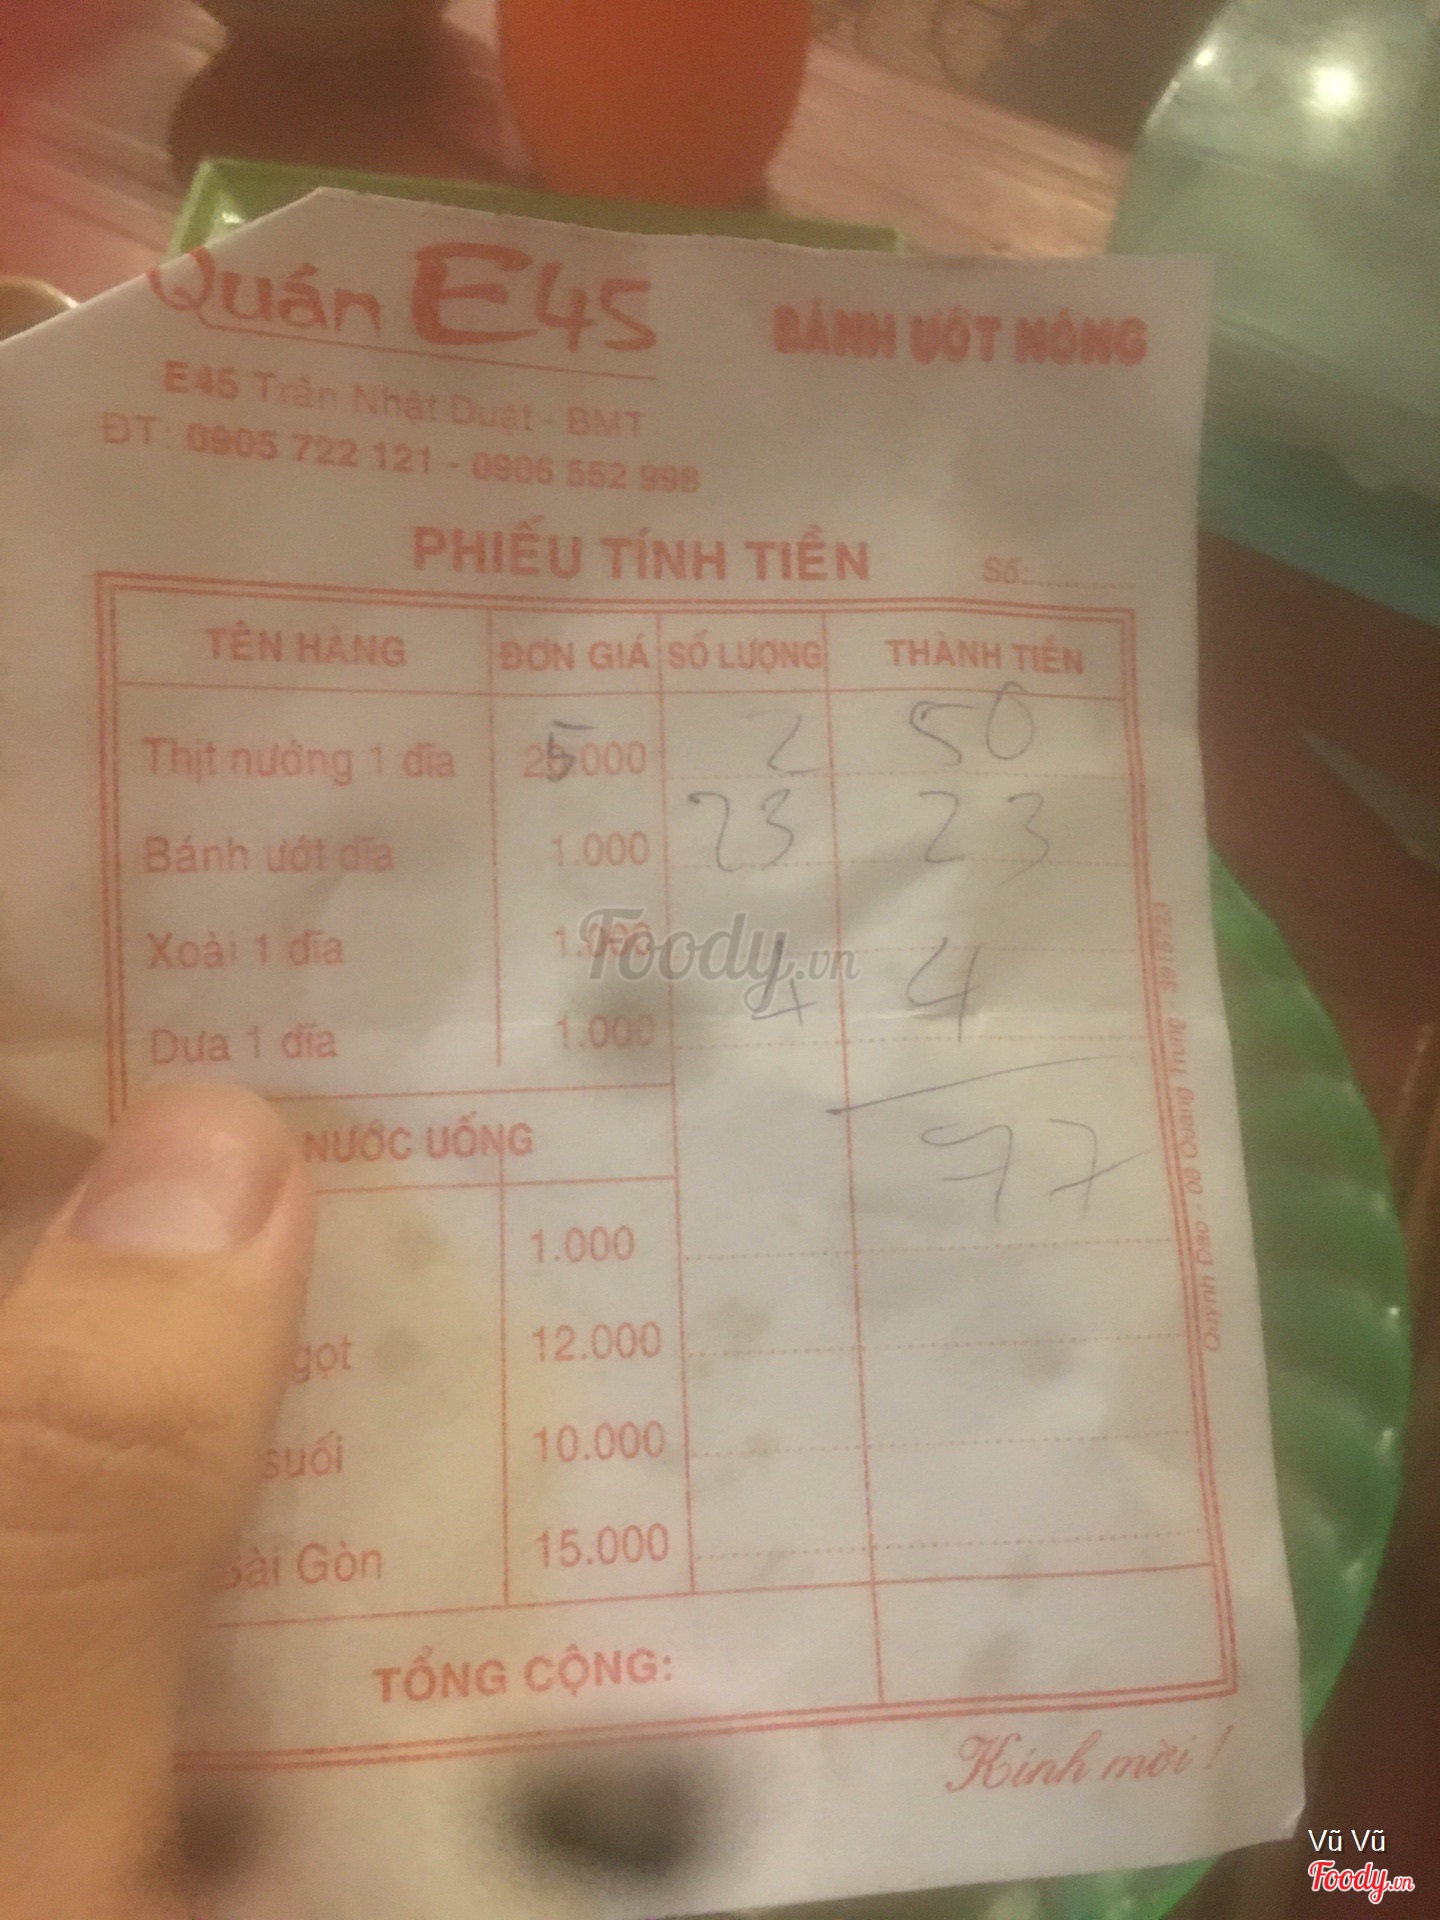 Quán E45
BÁNH ƯỚT NÓNG
E45 Trần Nhật Duật - BMT
ĐT: 0905 722 121 - 0906 552 998
PHIẾU TÍNH TIỀN Số:
TÊN HÀNG ĐƠN GIÁ SỐ LƯỢNG THÀNH TIỀN
Thịt nướng 1 dĩa 25.000 2 50
Bánh ướt dĩa 1.000 23 23
Xoài 1 dĩa 1.000
Dưa 1 dĩa 1.000 4 4
77
NƯỚC UỐNG
1.000
gọt 12.000
suối 10.000
Sài Gòn 15.000
TỔNG CỘNG:
Kính mời !
Foody.vn
Vũ Vũ
Foody.vn